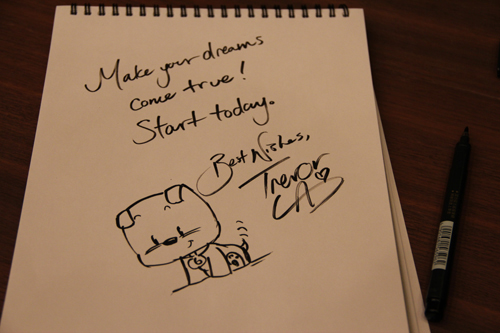 Make your dreams
come true!
Start today.
Best Wishes,
Trevor